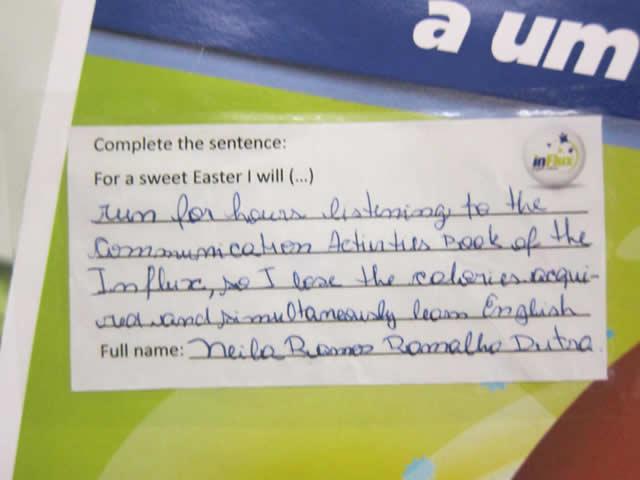 a um
Complete the sentence:
inFlux
For a sweet Easter I will (...)
run for hours listening to the
Communication Activities Book of the
Influx, so I lose the calories acqui-
red and simultaneously learn English
Full name: Neila Ramos Ramalho Dutra.